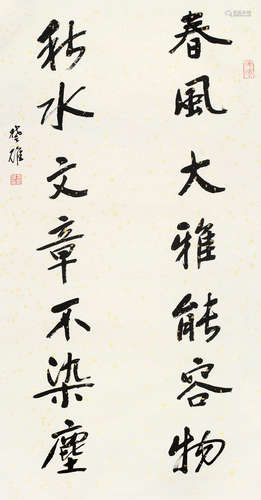 春風大雅能容物
秋水文章不染塵
楚雄